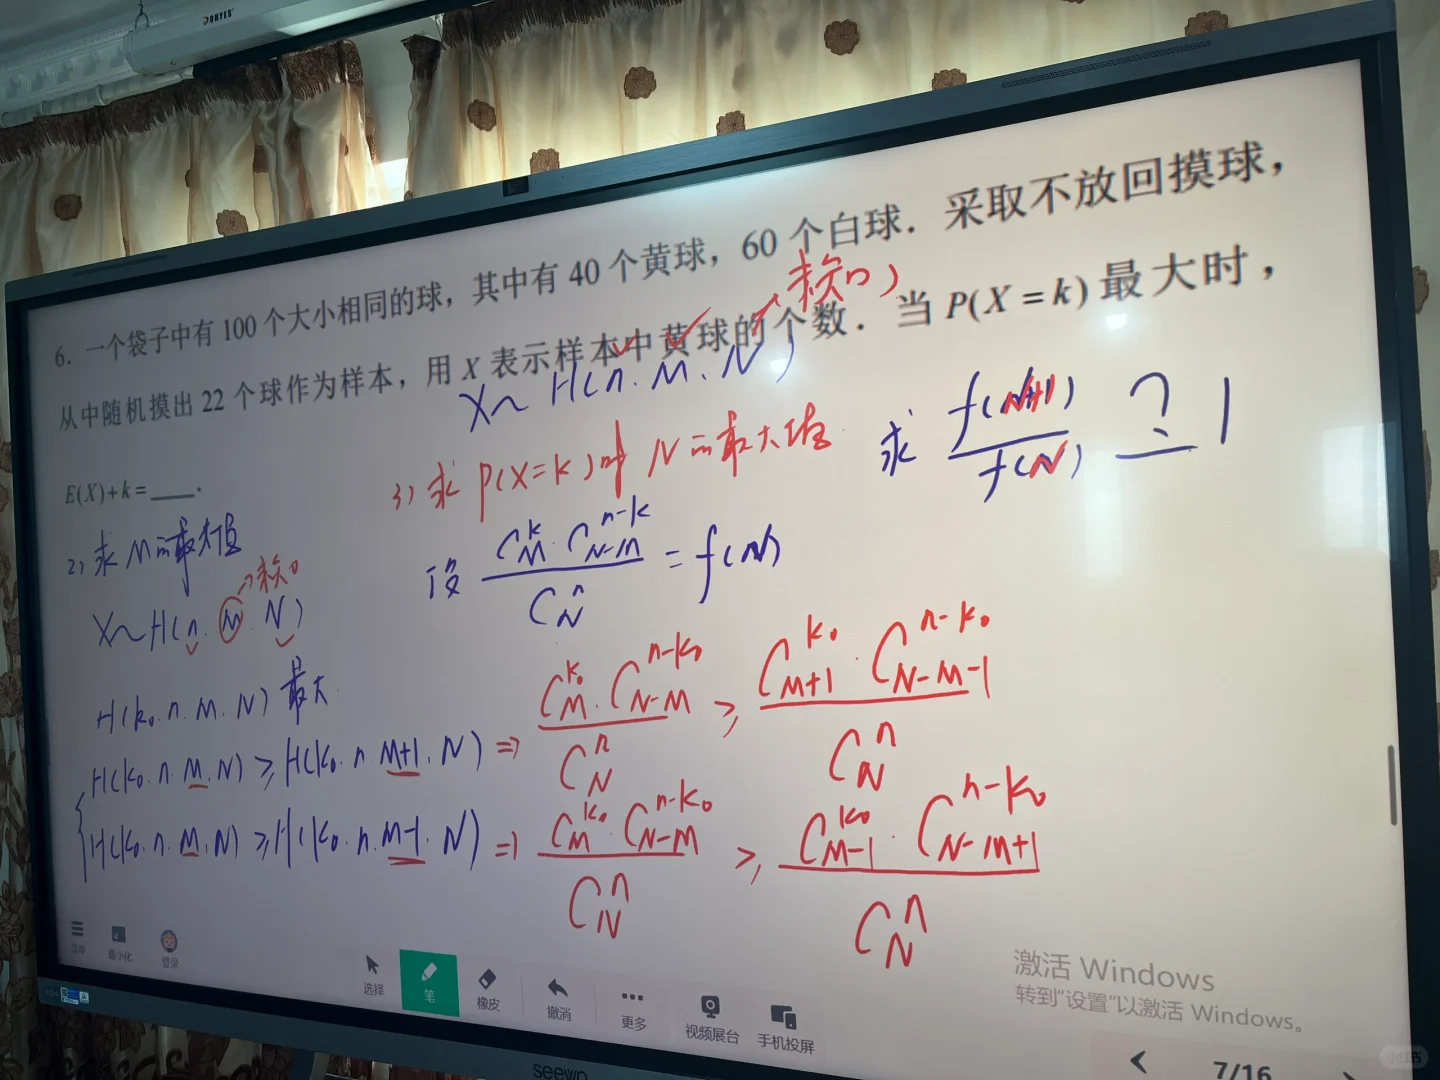 DONYES
6. 一个袋子中有 100 个大小相同的球，其中有 40 个黄球，60 个白球．采取不放回摸球，
从中随机摸出 22 个球作为样本，用 X 表示样本中黄球的个数．当 P(X = k) 最大时，
E(X) + k = ____.
未知
X～H(n. M. N)
3) 求 P(X=k)时 N的最大值
求 f(N+1) / f(N) ? 1
设 C_M^k · C_{N-M}^{n-k} / C_N^n = f(N)
2) 求 M的最大值
未知
X～H(n. M. N)
H(k₀. n. M. N) 最大
H(k₀. n. M. N) ≥ H(k₀. n. M+1. N) ⇒ C_M^{k₀} · C_{N-M}^{n-k₀} / C_N^n ≥ C_{M+1}^{k₀} · C_{N-M-1}^{n-k₀} / C_N^n
H(k₀. n. M. N) ≥ H(k₀. n. M-1. N) ⇒ C_M^{k₀} · C_{N-M}^{n-k₀} / C_N^n ≥ C_{M-1}^{k₀} · C_{N-M+1}^{n-k₀} / C_N^n
激活 Windows
转到"设置"以激活 Windows。
菜单
最小化
登录
选择
笔
橡皮
撤消
更多
视频展台
手机投屏
7/16
seewo
小红书